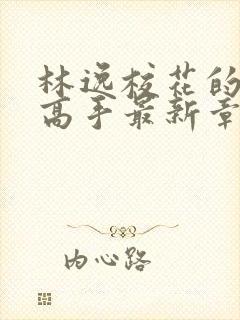 林逸校花的
高手最新章
内心路